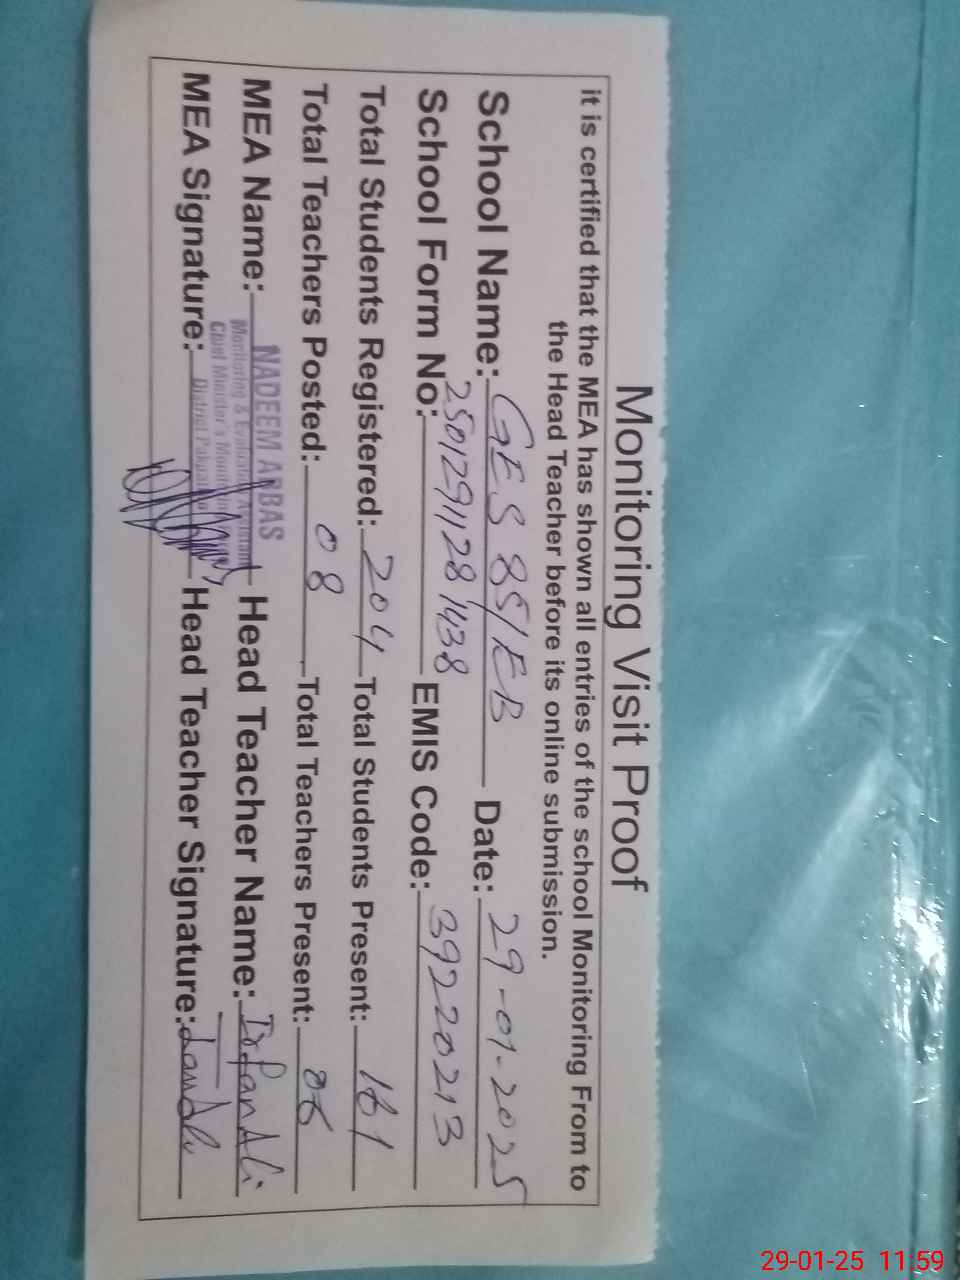 Monitoring Visit Proof
it is certified that the MEA has shown all entries of the school Monitoring From to
the Head Teacher before its online submission.
School Name: GES 85/EB Date: 29-01-2025
School Form No: 25012911281438 EMIS Code: 39220213
Total Students Registered: 204 Total Students Present: 161
Total Teachers Posted: 08 Total Teachers Present: 06
MEA Name: NADEEM ABBAS Head Teacher Name: Irfan Ali
Monitoring & Evaluation Assistant
Chief Minister's
District
MEA Signature: Head Teacher Signature:
29-01-25 11:59